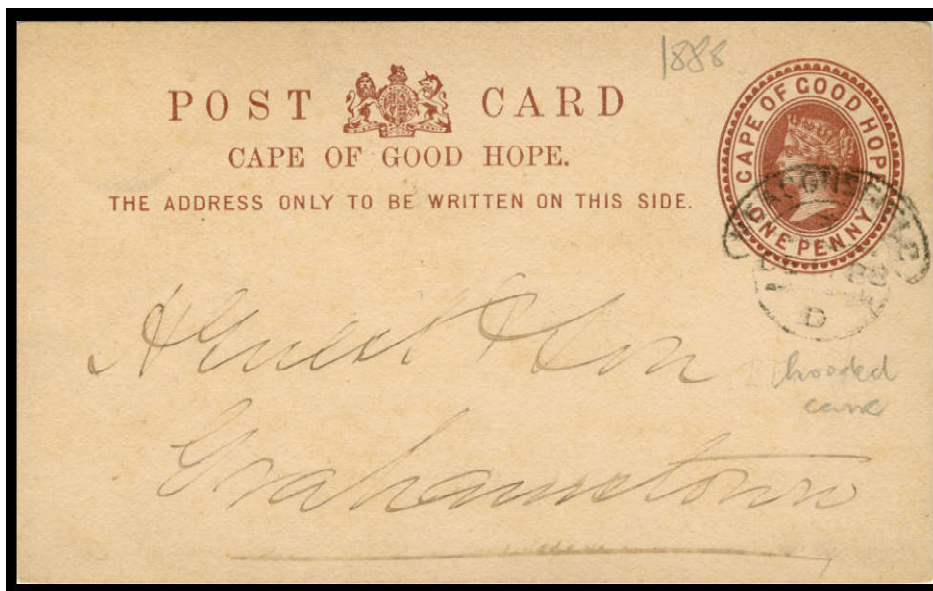 1888
POST CARD
CAPE OF GOOD HOPE.
THE ADDRESS ONLY TO BE WRITTEN ON THIS SIDE.
CAPE OF GOOD HOPE
ONE PENNY
D
& Son
Grahamstown
hooded